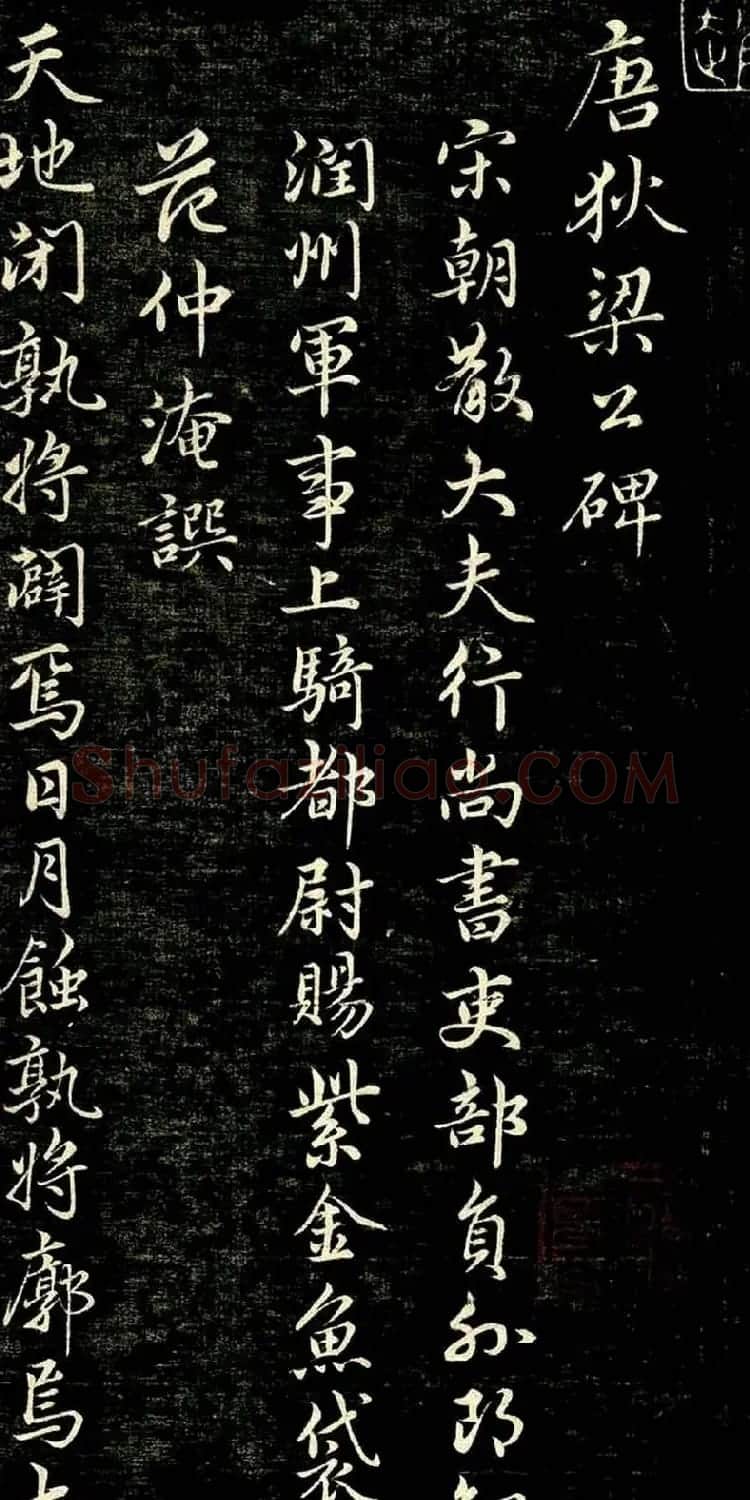 唐狄梁公碑
宋朝散大夫行尚書吏部負外郎知
潤州軍事上騎都尉賜紫金魚袋
范仲淹譔
天地閉孰將闢焉日月蝕孰將廓焉大
Shufaziliao.COM